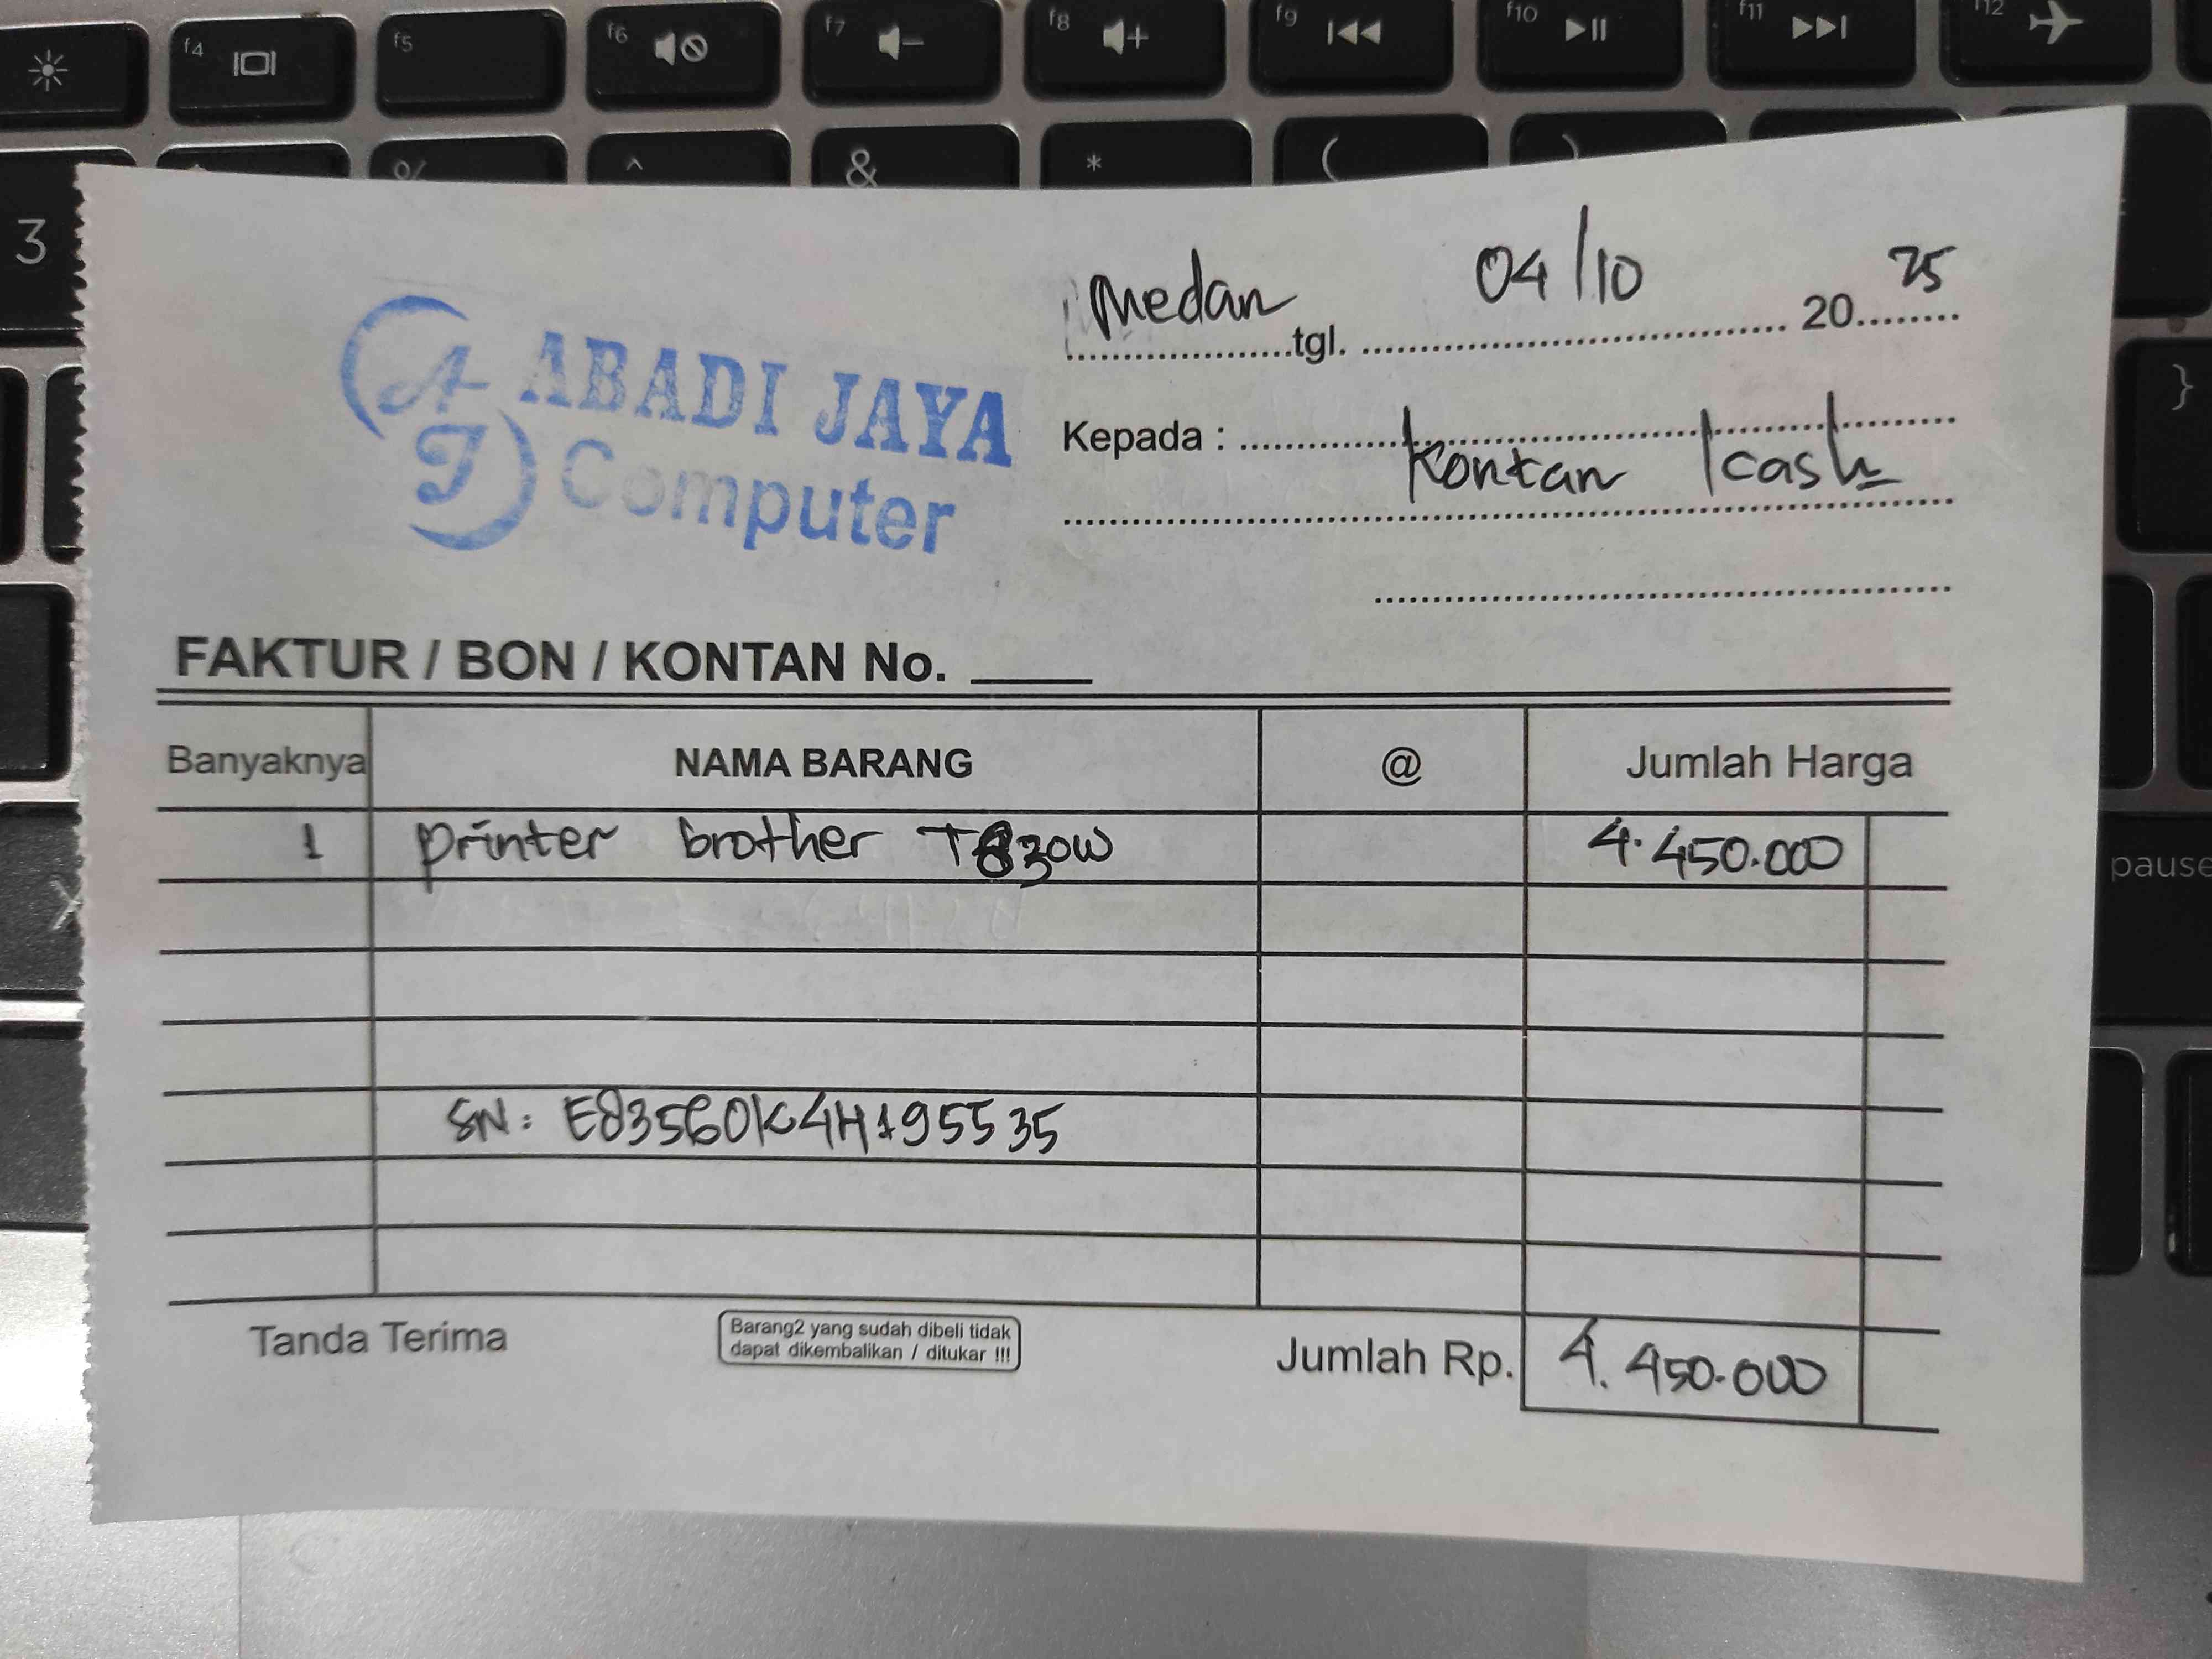 f4
f5
f6
f7
f8
f9
f10
f11
f12
% ^ & * ( )
3
Medan tgl. 04/10 2025
A ABADI JAYA
J Computer
Kepada : Kontan / cash
}
FAKTUR / BON / KONTAN No.
Banyaknya NAMA BARANG @ Jumlah Harga
1 printer brother T830W 4.450.000
pause
X
SN: E83560K4H195535
Tanda Terima
Barang2 yang sudah dibeli tidak
dapat dikembalikan / ditukar !!!
Jumlah Rp. 4.450.000